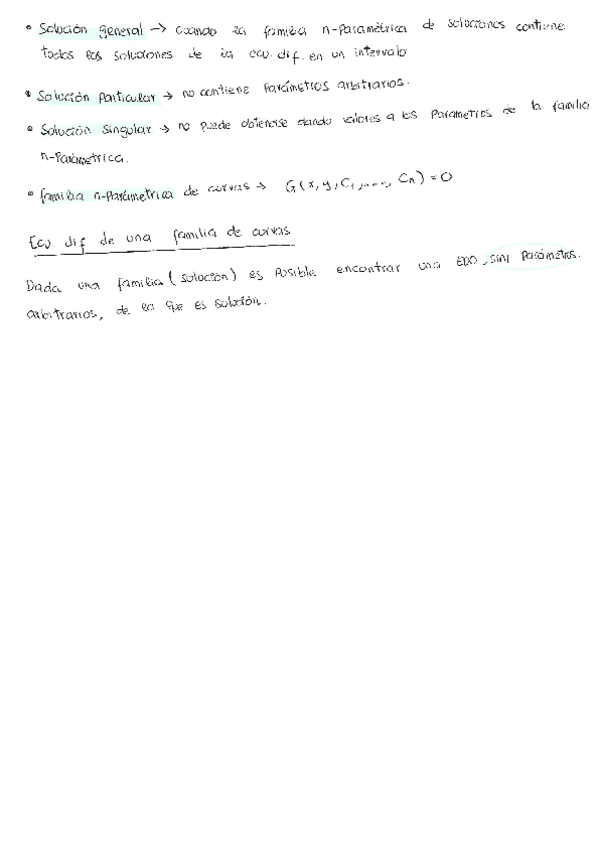 • Solución general → cuando la familia n-paramétrica de soluciones contiene
todas las soluciones de la ecu. dif. en un intervalo
• Solución particular → no contiene parámetros arbitrarios.
• Solución singular → no puede obtenerse dando valores a los parametros de la familia
n-parametrica.
• familia n-parámetrica de curvas → G(x, y, C₁, ..., Cₙ) = 0
Ecu dif de una familia de curvas
Dada una familia (solución) es posible encontrar una EDO, sin parámetros.
arbitrarios, de la que es solución.